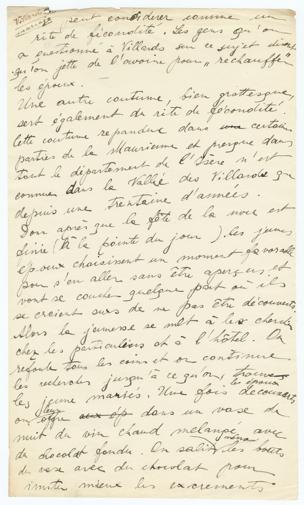 Villards
mariage
, sont considérer comme un
rite de fécondité. Les gens qu'on
a questionné à Villards sur ce sujet disent
qu'on jette de l'avoine pour "réchauffer"
les époux.
Une autre coutume, bien grottesque,
sert également du rite de fécondité.
Cette coutume repandue dans certaines
parties de la Maurienne et presque dans
tout le département de l'Isère n'est
connue dans la Vallée des Villards que
depuis une trentaine d'années.
Donc après que la fête de la noce est
finie (à la pointe du jour), les jeunes
époux choisissent un moment favorable
pour s'en aller sans être aperçus, et
vont se coucher quelque part où ils
se croient surs de ne pas être découverts.
Alors la jeunesse se met à les chercher
chez les particuliers et à l'hôtel. On
regarde tous les coins et on continue
les recherches jusqu'à ce qu'on trouve
les jeunes mariés. Une fois les époux découverts
on leur offre dans un vase de
nuit du vin chaud mélangé avec
du chocolat fondu. On salit même les bouts
du vase avec du chocolat pour
imiter mieux les excréments